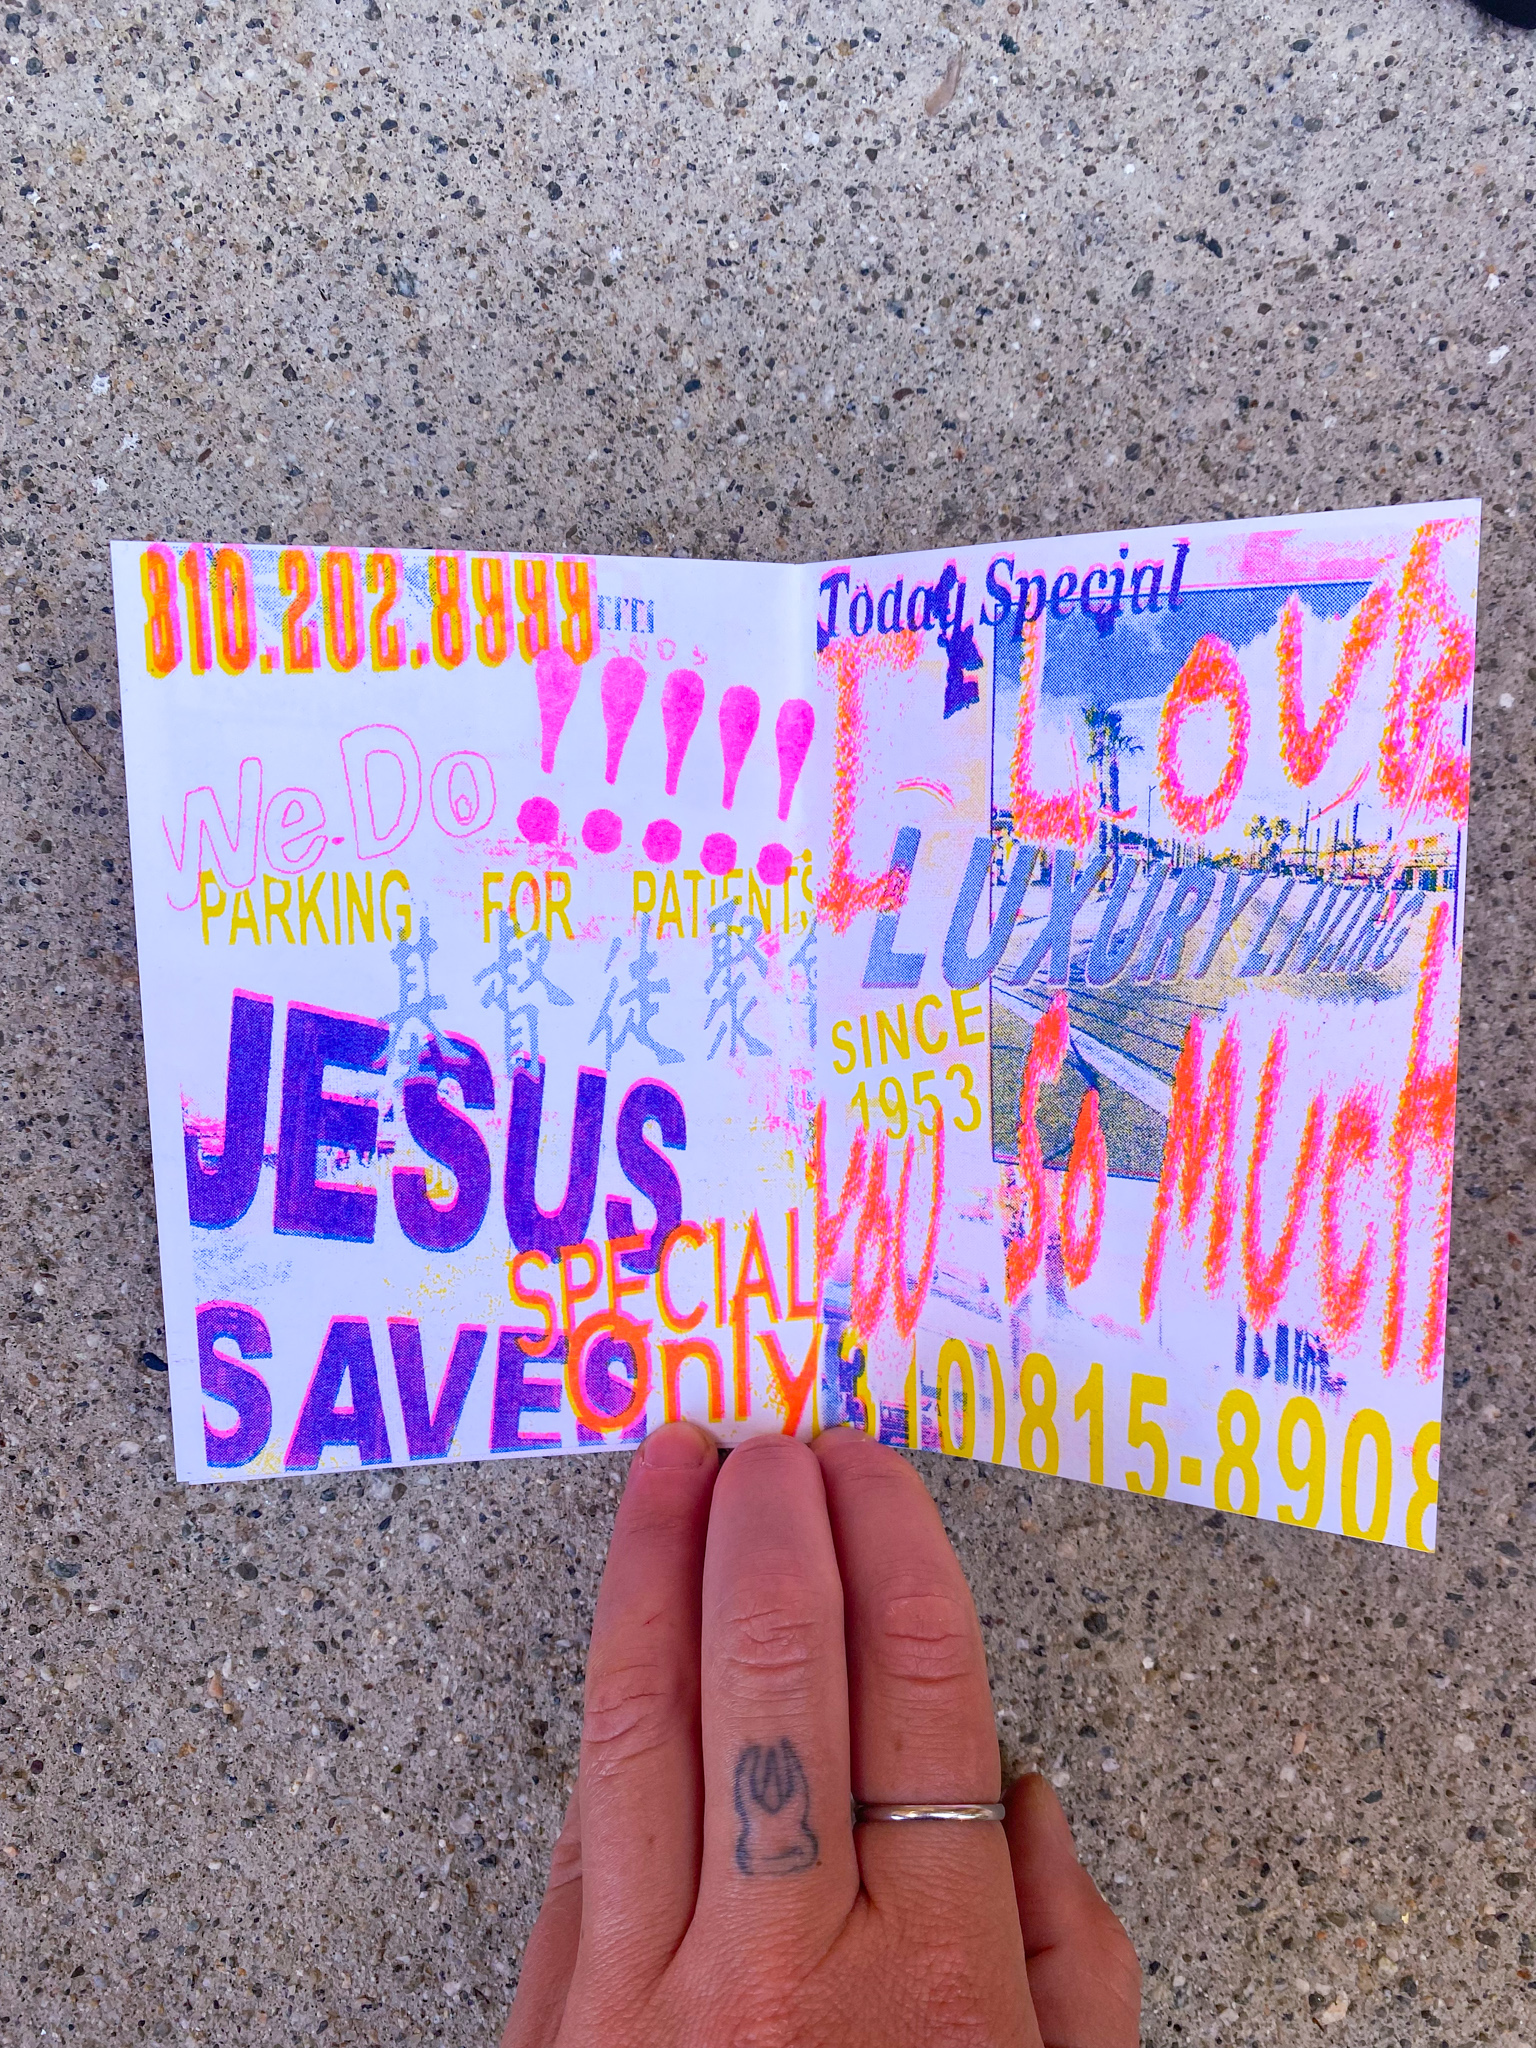 810.202.8999
We.Do
!!!!!
PARKING FOR PATIENTS
基督徒聚
JESUS
SAVES
SPECIAL
Only
Today Special
I LOVE
LUXURY LIVING
SINCE
1953
YOU SO MUCH
(310)815-8908